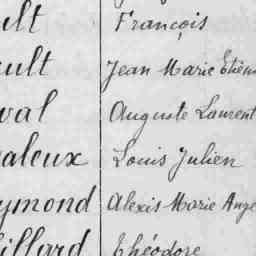 ult François
ult Jean Marie Etien
val Auguste Laurent
aleux Louis Julien
ymond Alexis Marie Ange
illard Théodore